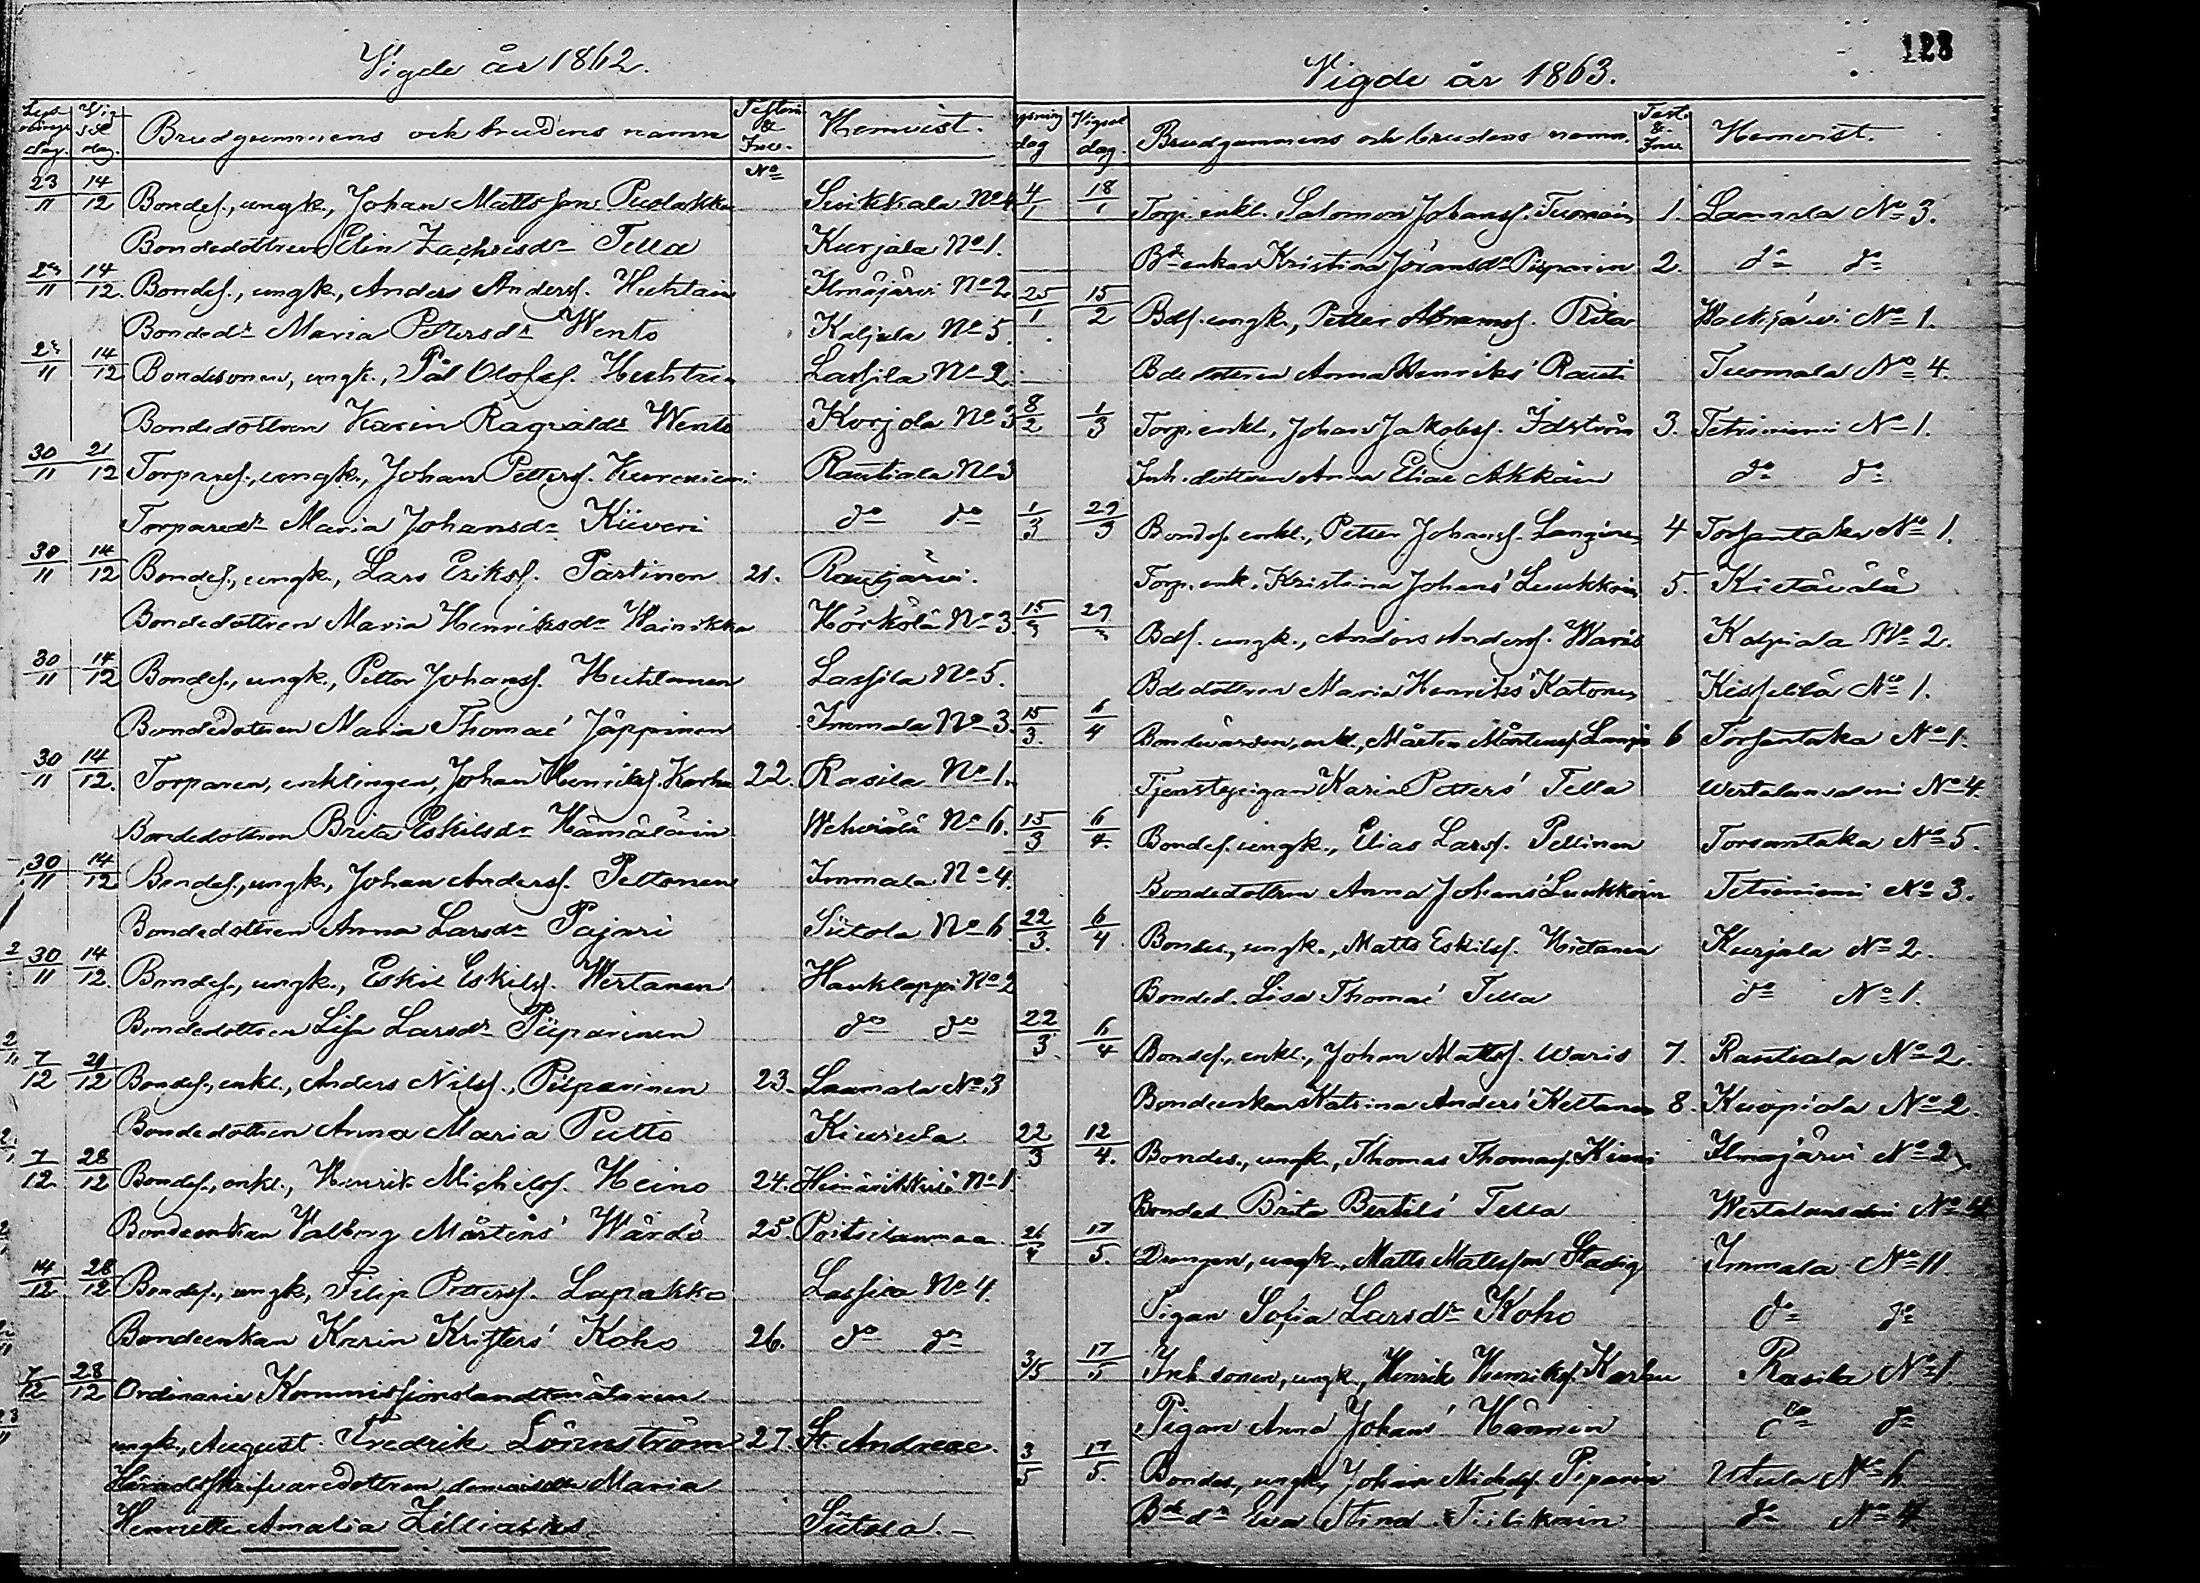 128
Vigde år 1862.
Lysnings dag. Vigsel dag. Brudgummens och brudens namn Testim. & Inv. No Hemvist.
23/11 14/12 Bondes., ungk., Johan Mattsson Puolakka Siikkala No 4
Bondedottren Elin Zachrisdr Tella Kurjala No 1.
23/11 14/12. Bondes., ungk., Anders Anderss. Huhtain Ilmäjärvi No 2
Bondedr Maria Pettersdr Wento Kaljala No 5.
23/11 14/12 Bondesonen, ungk., Pål Olofss. Huhtain Lassila No 2
Bondedottren Karin Ragvaldr Wento Korjola No 3
30/11 21/12 Torpares., ungk., Johan Petterss. Rautiala No 3
Torparedr Maria Johansdr Kiiveri do do
30/11 14/12 Bondes., ungk., Lars Erikss. Partinen 21. Rautjärvi.
Bondedottren Maria Henriksdr Wainikka Hörkölä No 3
30/11 14/12 Bondes., ungk., Petter Johanss. Huhtanen Lassila No 5.
Bondedottren Maria Thomae' Jäppinen Immala No 3.
30/11 14/12. Torparen, enklingen, Johan Henrikss. Karhu 22. Rasila No 1.
Bondedottren Brita Eskilsdr Hämäläin Wehviälä No 6.
30/11 14/12 Bondes., ungk., Johan Anderss. Peltonen Immala No 4.
Bondedottren Anna Larsdr Pajari Siitola No 6.
30/11 14/12. Bondes., ungk., Eskil Eskilss. Wertanen Haukkappi No 2
Bondedottren Lisa Larsdr Piiparinen do do
7/12 21/12 Bondes., enkl., Anders Nilss. Piiparinen 23. Laamala No 3
Bondedottren Anna Maria Putto Kiurula
7/12. 28/12 Bondes., enkl., Henrik Michelss. Heino 24. No 1.
Bondeenkan Valborg Mårtens' Wärdä 25. Poitsilanmaa.
14/12. 28/12 Bondes., ungk., Filip Petterss. Lapakko Lassila No 4.
Bondeenkan Karin Kristers' Koho 26. do do
7/12 28/12 Ordinarie Kommissionslandtmätaren
ungk., August Fredrik Lönnström 27. St. Andreae.
Häradsskrifvaredottren, demoiselle Maria
Henriette Amalia Zilliacus Siitola.
Vigde år 1863.
Lysning dag Vigsel dag. Brudgummens och brudens namn. Test. & Inv. Hemvist.
4/1 18/1 Torp. enkl. Salomon Johanss. Tuomain 1. Laamala No 3.
Bde enkan Kristina Jöransdr Piiparin 2. do do
25/1 15/2 Bds. ungk., Petter Abramss. Pita No 1.
Bde dottren Anna Henriks' Rauti Tuomala No 4.
8/2 1/3 Torp. enkl., Johan Jakobss. Idström 3. Tetriniemi No 1.
Inh. dottren Anna Eliae Akkain do do
1/3 29/3 Bondes. enkl., Petter Johanss. Langinen 4 Torsantaka No 1.
Torp. enk. Kristina Johans' Luukkain 5. Kietävälä
15/3 29/3 Bds. ungk., Anders Anderss. Waris Kaljala No 2.
Bdedottren Maria Henriks' Katonen Kisselilä No 1.
15/3. 6/4 Bondevärden, enkl., Mårten Mårtenss. Langi 6 Torsantaka No 1.
Tjenstepigan Karin Petters' Tella Wertalansalmi No 4.
15/3 6/4. Bondes. ungk., Elias Larss. Pellinen Torsantaka No 5.
Bondedottren Anna Johans' Luukkain Tetriniemi No 3.
22/3. 6/4. Bondes., ungk., Matts Eskilss. Hietanen Kurjala No 2.
Bonded. Lisa Thomae' Tella do No 1.
22/3. 6/4 Bondes., enkl., Johan Mattss. Waris 7. Rautiala No 2.
Bondeenkan Katrina Anders' Keltanen 8. Kuopiola No 2.
22/3 12/4. Bondes., ungk., Thomas Thomass. Kinni Ilmajärvi No 2.
Bonded. Brita Bertils' Tella Wertalansalmi No 4
26/4 17/5. Drengen, ungk., Matts Mattsson Stadig Immala No 11
Pigan Sofia Larsdr Koho do do
3/5 17/5 Inh. sonen, ungk., Henrik Henrikss. Karhu Rasila No 1.
Pigan Anna Johans' Hännin do do
3/5 17/5. Bondes., ungk., Johan Michelss. Piparin Utula No 6
Bde dr Eva Stina Tiilikain do No 4.